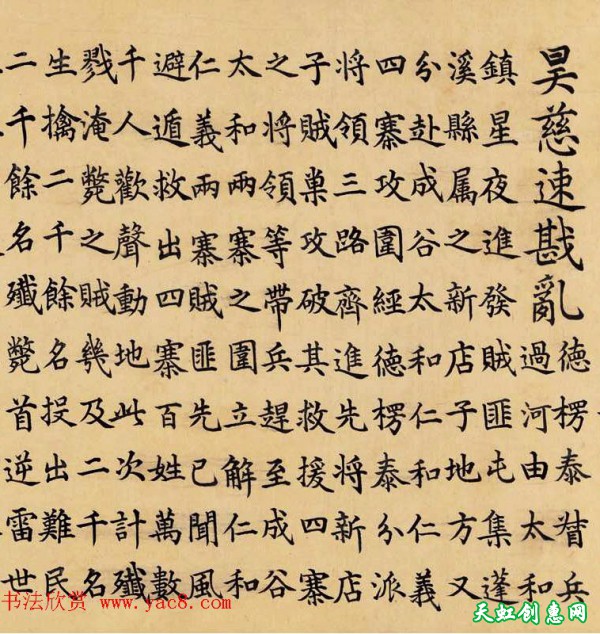 昊慈速戡亂
德楞泰督兵
過河由太和
鎮星夜進發賊匪屯集蓬
溪縣属之新店子地方又
分赴成谷太和仁和仁義
四寨攻圍經德楞泰分派
將領三路齊進先將新店
子賊巢攻破其救援四寨
之將領等帶兵趕至成谷
太和兩寨之圍立解仁和
仁義兩寨賊匪先已聞風
避遁救出四寨百姓萬數
千人歡聲動地此次計殲
戮淹斃之賊幾及二千名
生擒二千餘名投出難民
二千餘名殲斃首逆雷世
书法欣赏 www.yac8.com
天虹创惠网